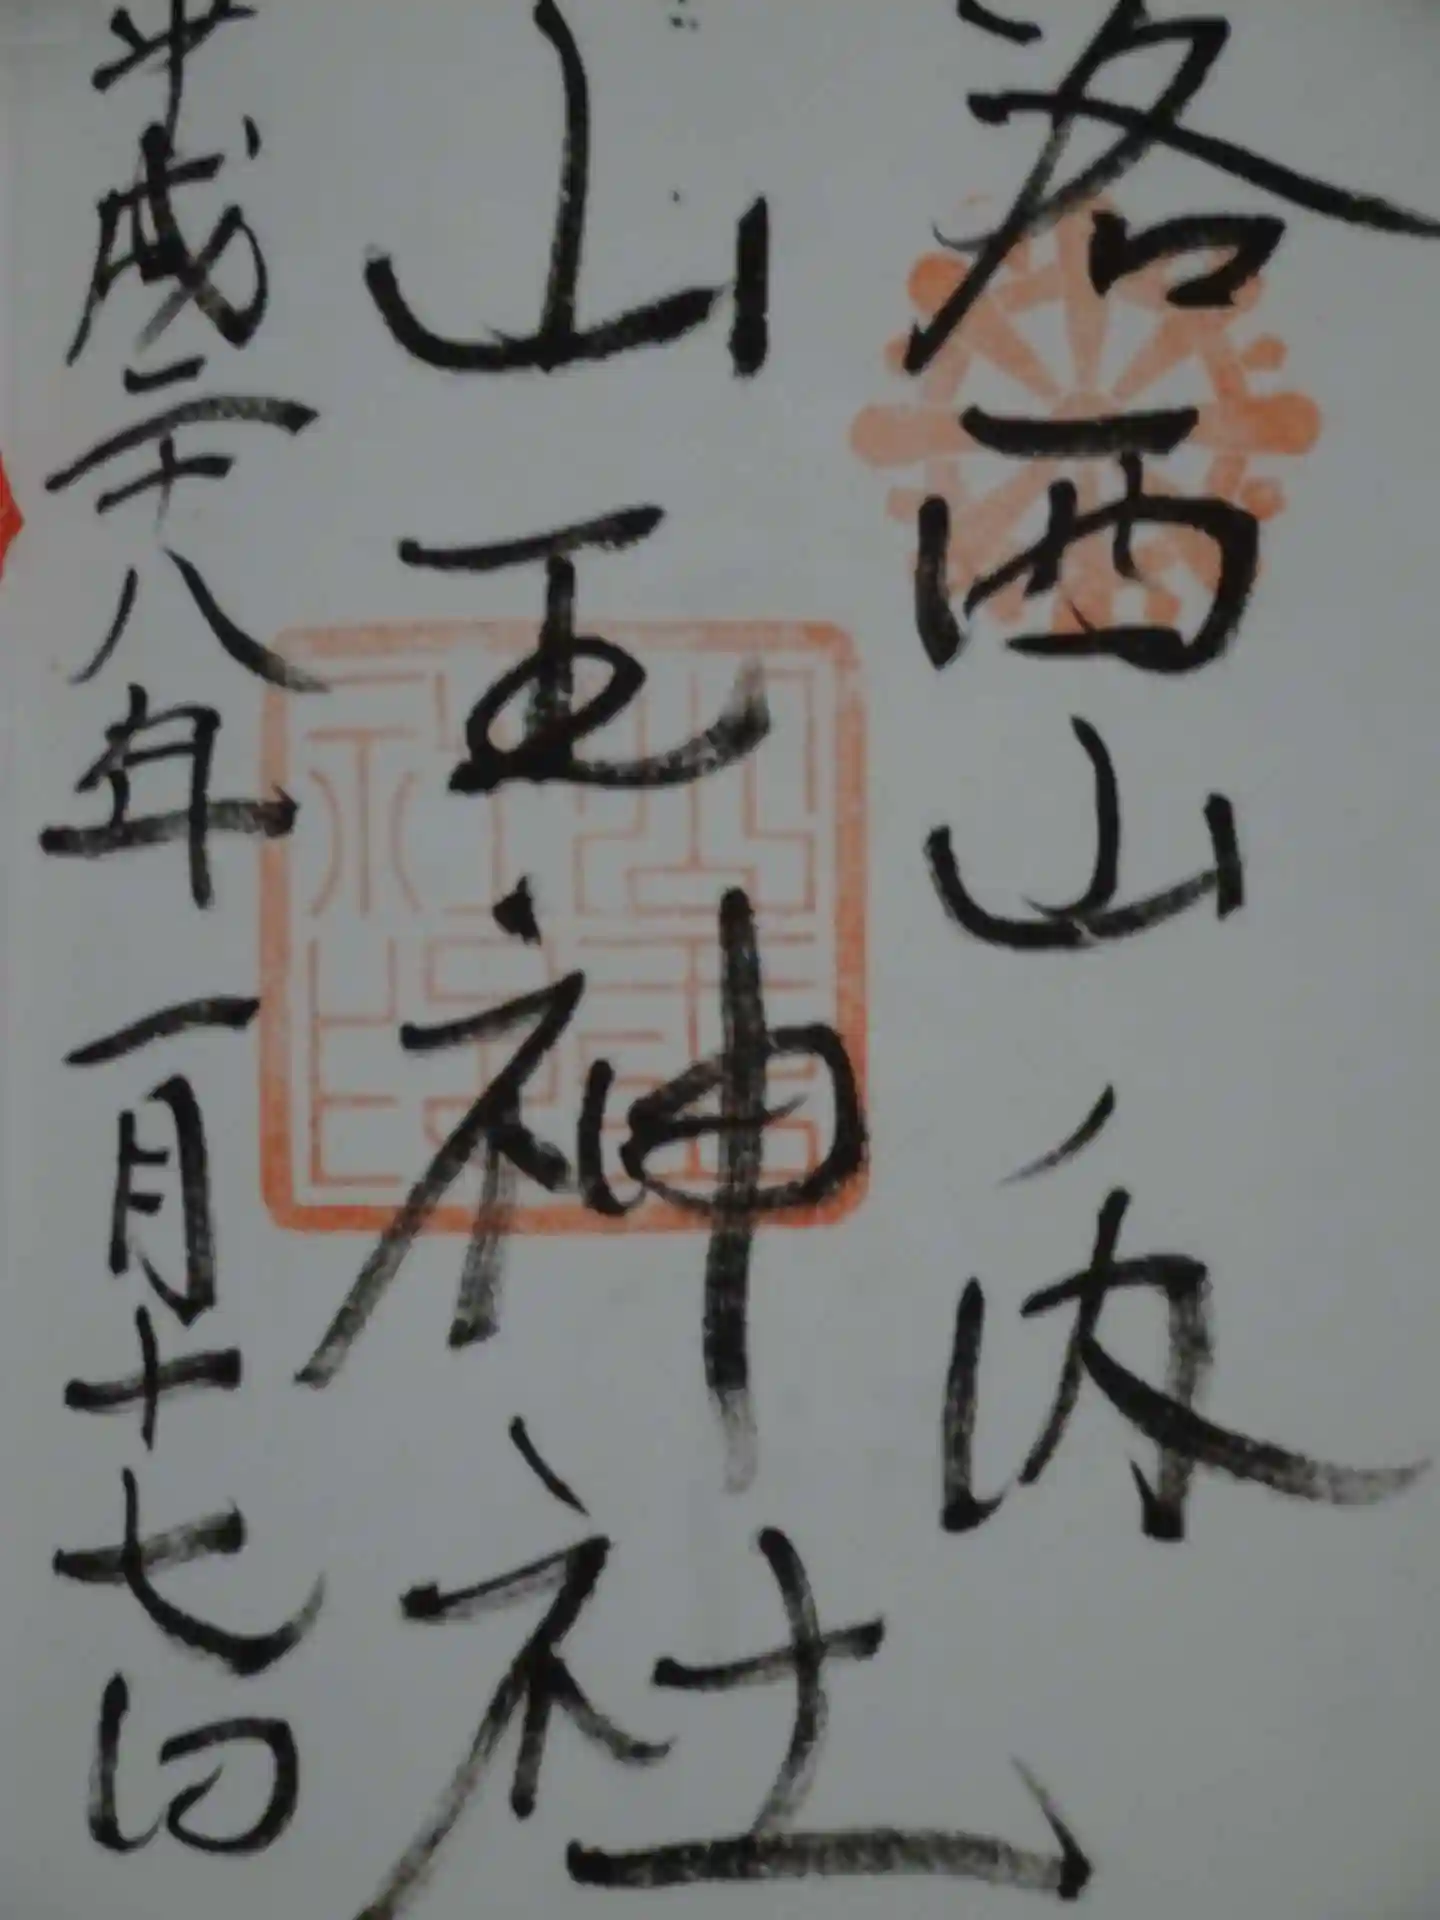 洛西山ノ内
山王神社
平成二十八年一月十七日